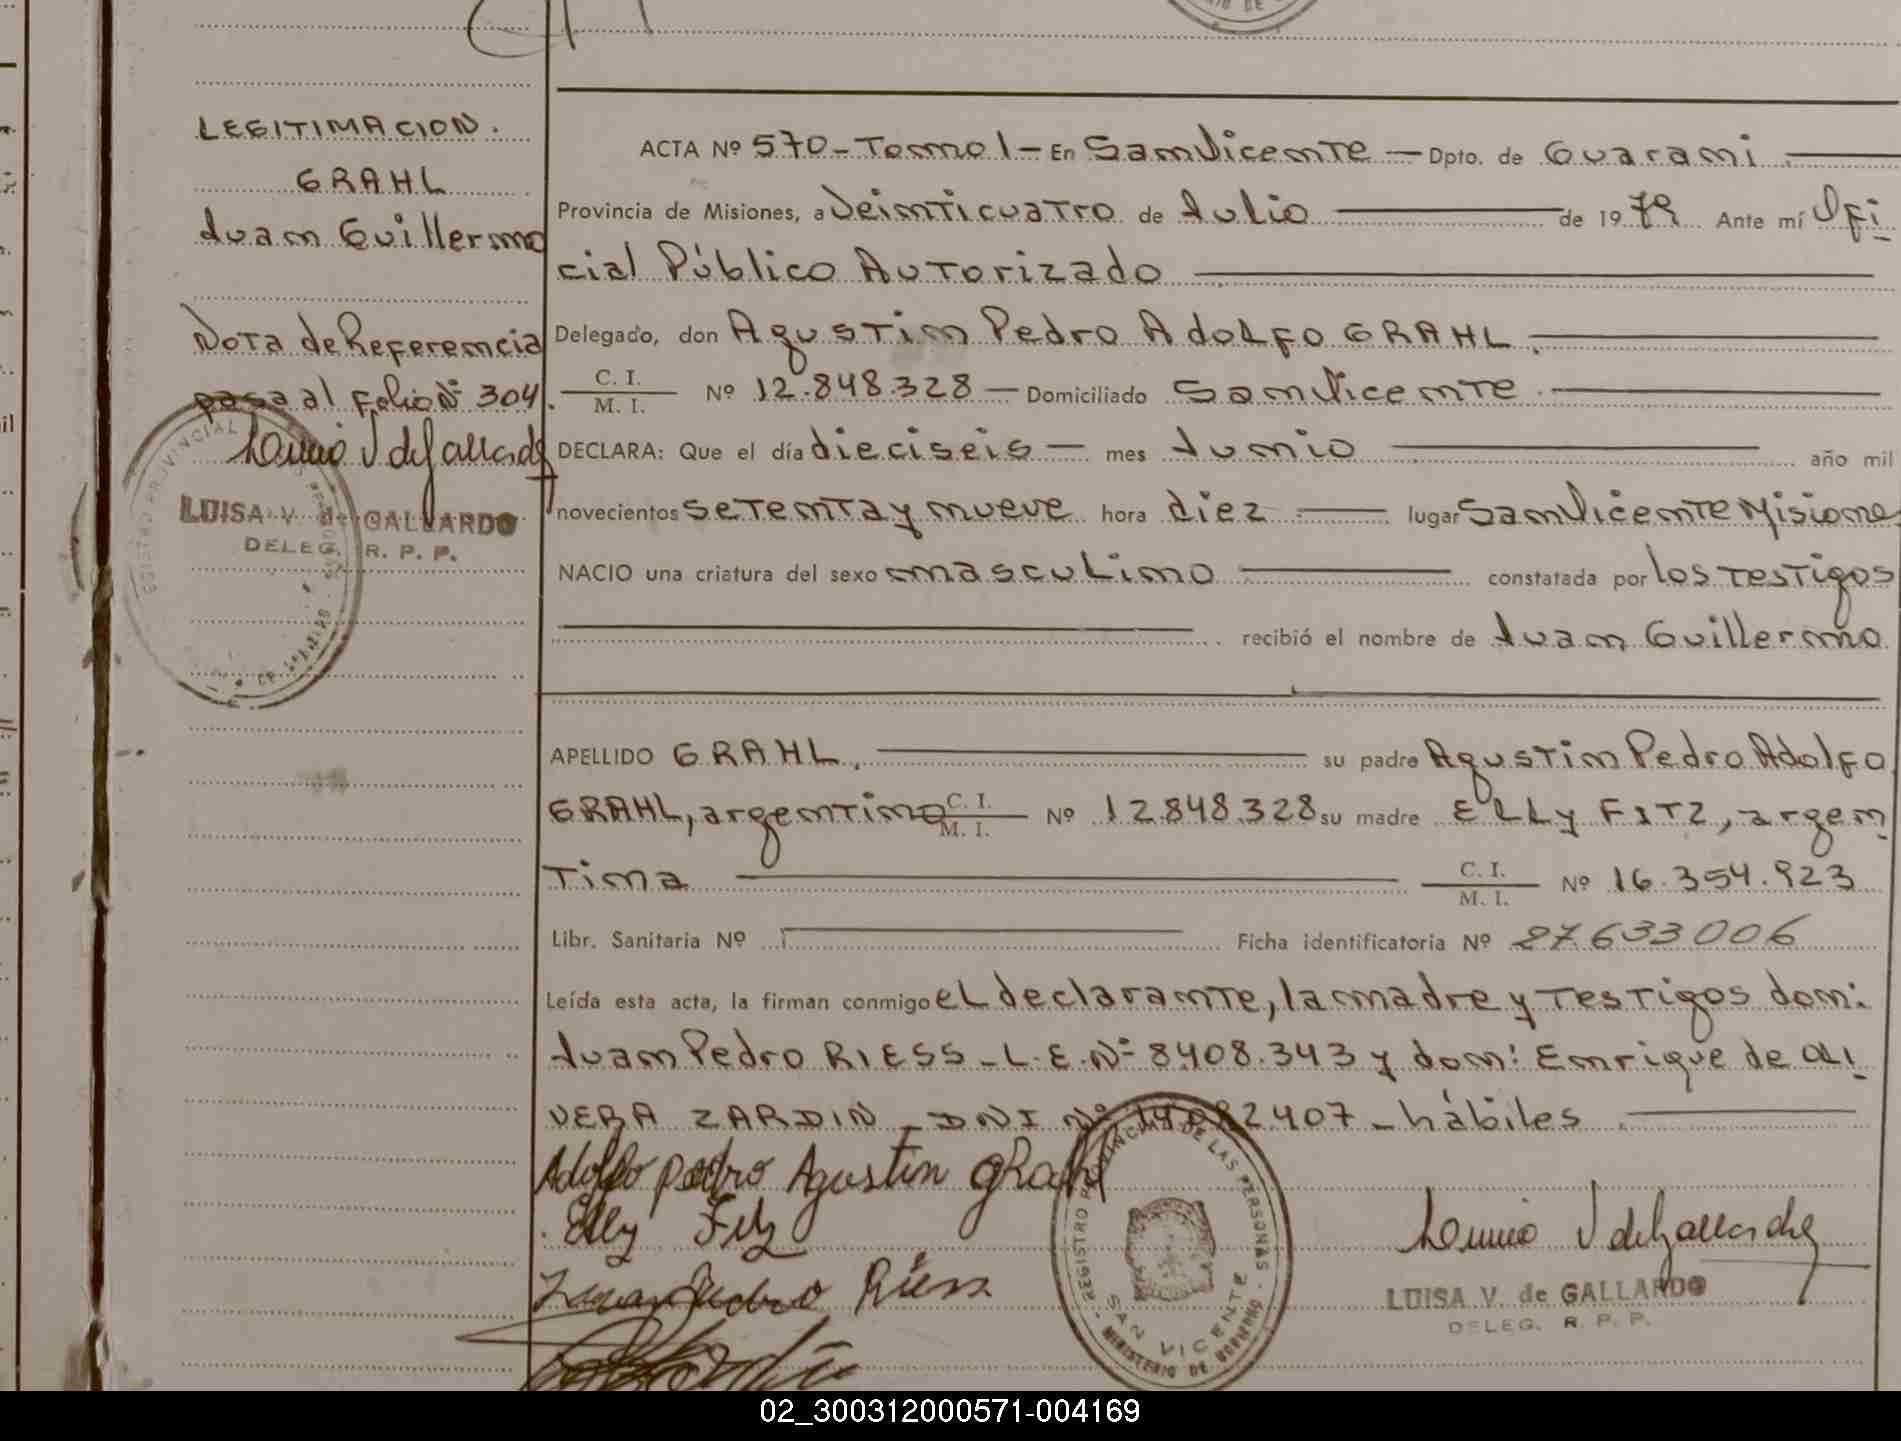 LEGITIMACION.
GRAHL
Juan Guillermo
Nota de Referencia
pasa al Folio Nº 304.
LUISA V. de GALLARDO
DELEG. R. P. P.
ACTA Nº 570-Tomo 1- En San Vicente — Dpto. de Guarani
Provincia de Misiones, a Veinticuatro de Julio de 1979 Ante mí Ofi
cial Público Autorizado
Delegado, don Agustin Pedro Adolfo GRAHL.
C. I.
M. I. Nº 12.848.328 — Domiciliado San Vicente
DECLARA: Que el día dieciseis — mes Junio año mil
novecientos setenta y nueve hora diez lugar San Vicente Misiones
NACIO una criatura del sexo masculino constatada por los testigos
recibió el nombre de Juan Guillermo
APELLIDO GRAHL. su padre Agustin Pedro Adolfo
GRAHL, argentino C. I. M. I. Nº 12.848.328 su madre ELLY FITZ, argen
tina C. I. M. I. Nº 16.354.923
Libr. Sanitaria Nº Ficha identificatoria Nº 27.633006
Leída esta acta, la firman conmigo el declarante, la madre y testigos don:
Juan Pedro RIESS - L.E.Nº 8.408.343 y don: Enrique de OLI
VERA ZARDIN - DNI Nº 14.082.407 - hábiles
Adolfo pedro Agustin gRahl
Elly Fitz
Juan Pedro Riess
REGISTRO PROVINCIAL DE LAS PERSONAS
SAN VICENTE
MINISTERIO DE GOBIERNO
LUISA V. de GALLARDO
DELEG. R. P. P.
02_300312000571-004169